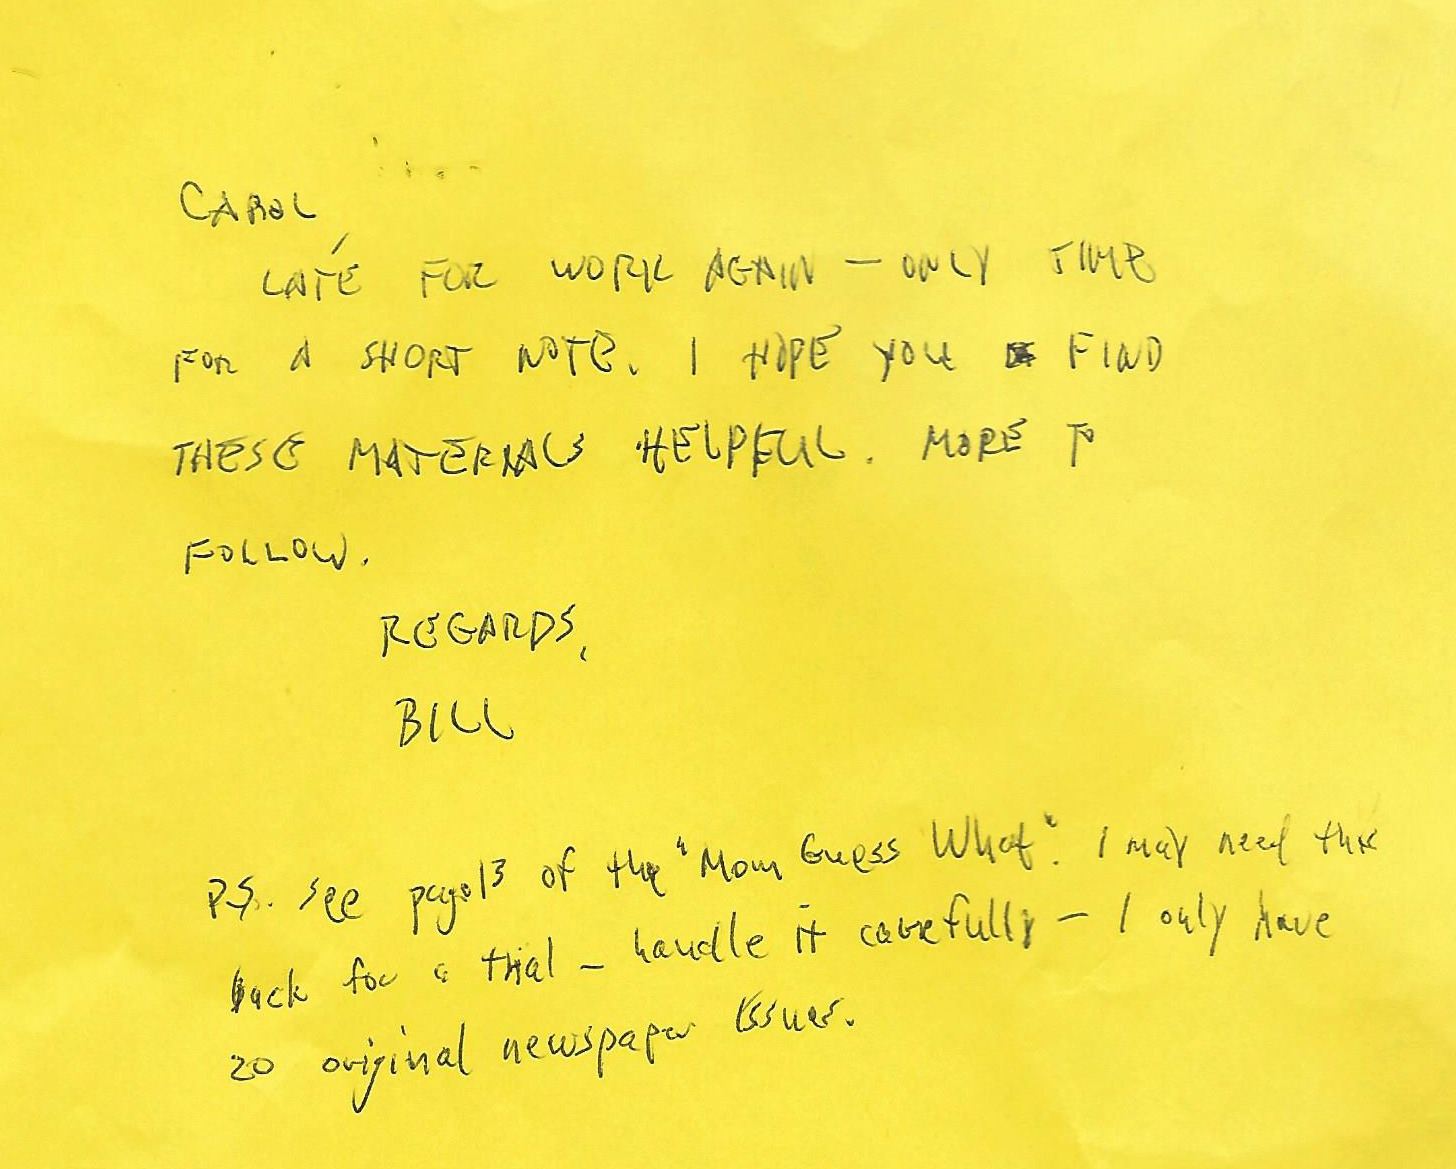 CAROL,
LATE FOR WORK AGAIN — ONLY TIME
FOR A SHORT NOTE. I HOPE YOU FIND
THESE MATERIALS HELPFUL. MORE TO
FOLLOW.
REGARDS,
BILL
P.S. See page 13 of the "Mom Guess What". I may need this
back for a trial — handle it carefully — I only have
20 original newspaper issues.